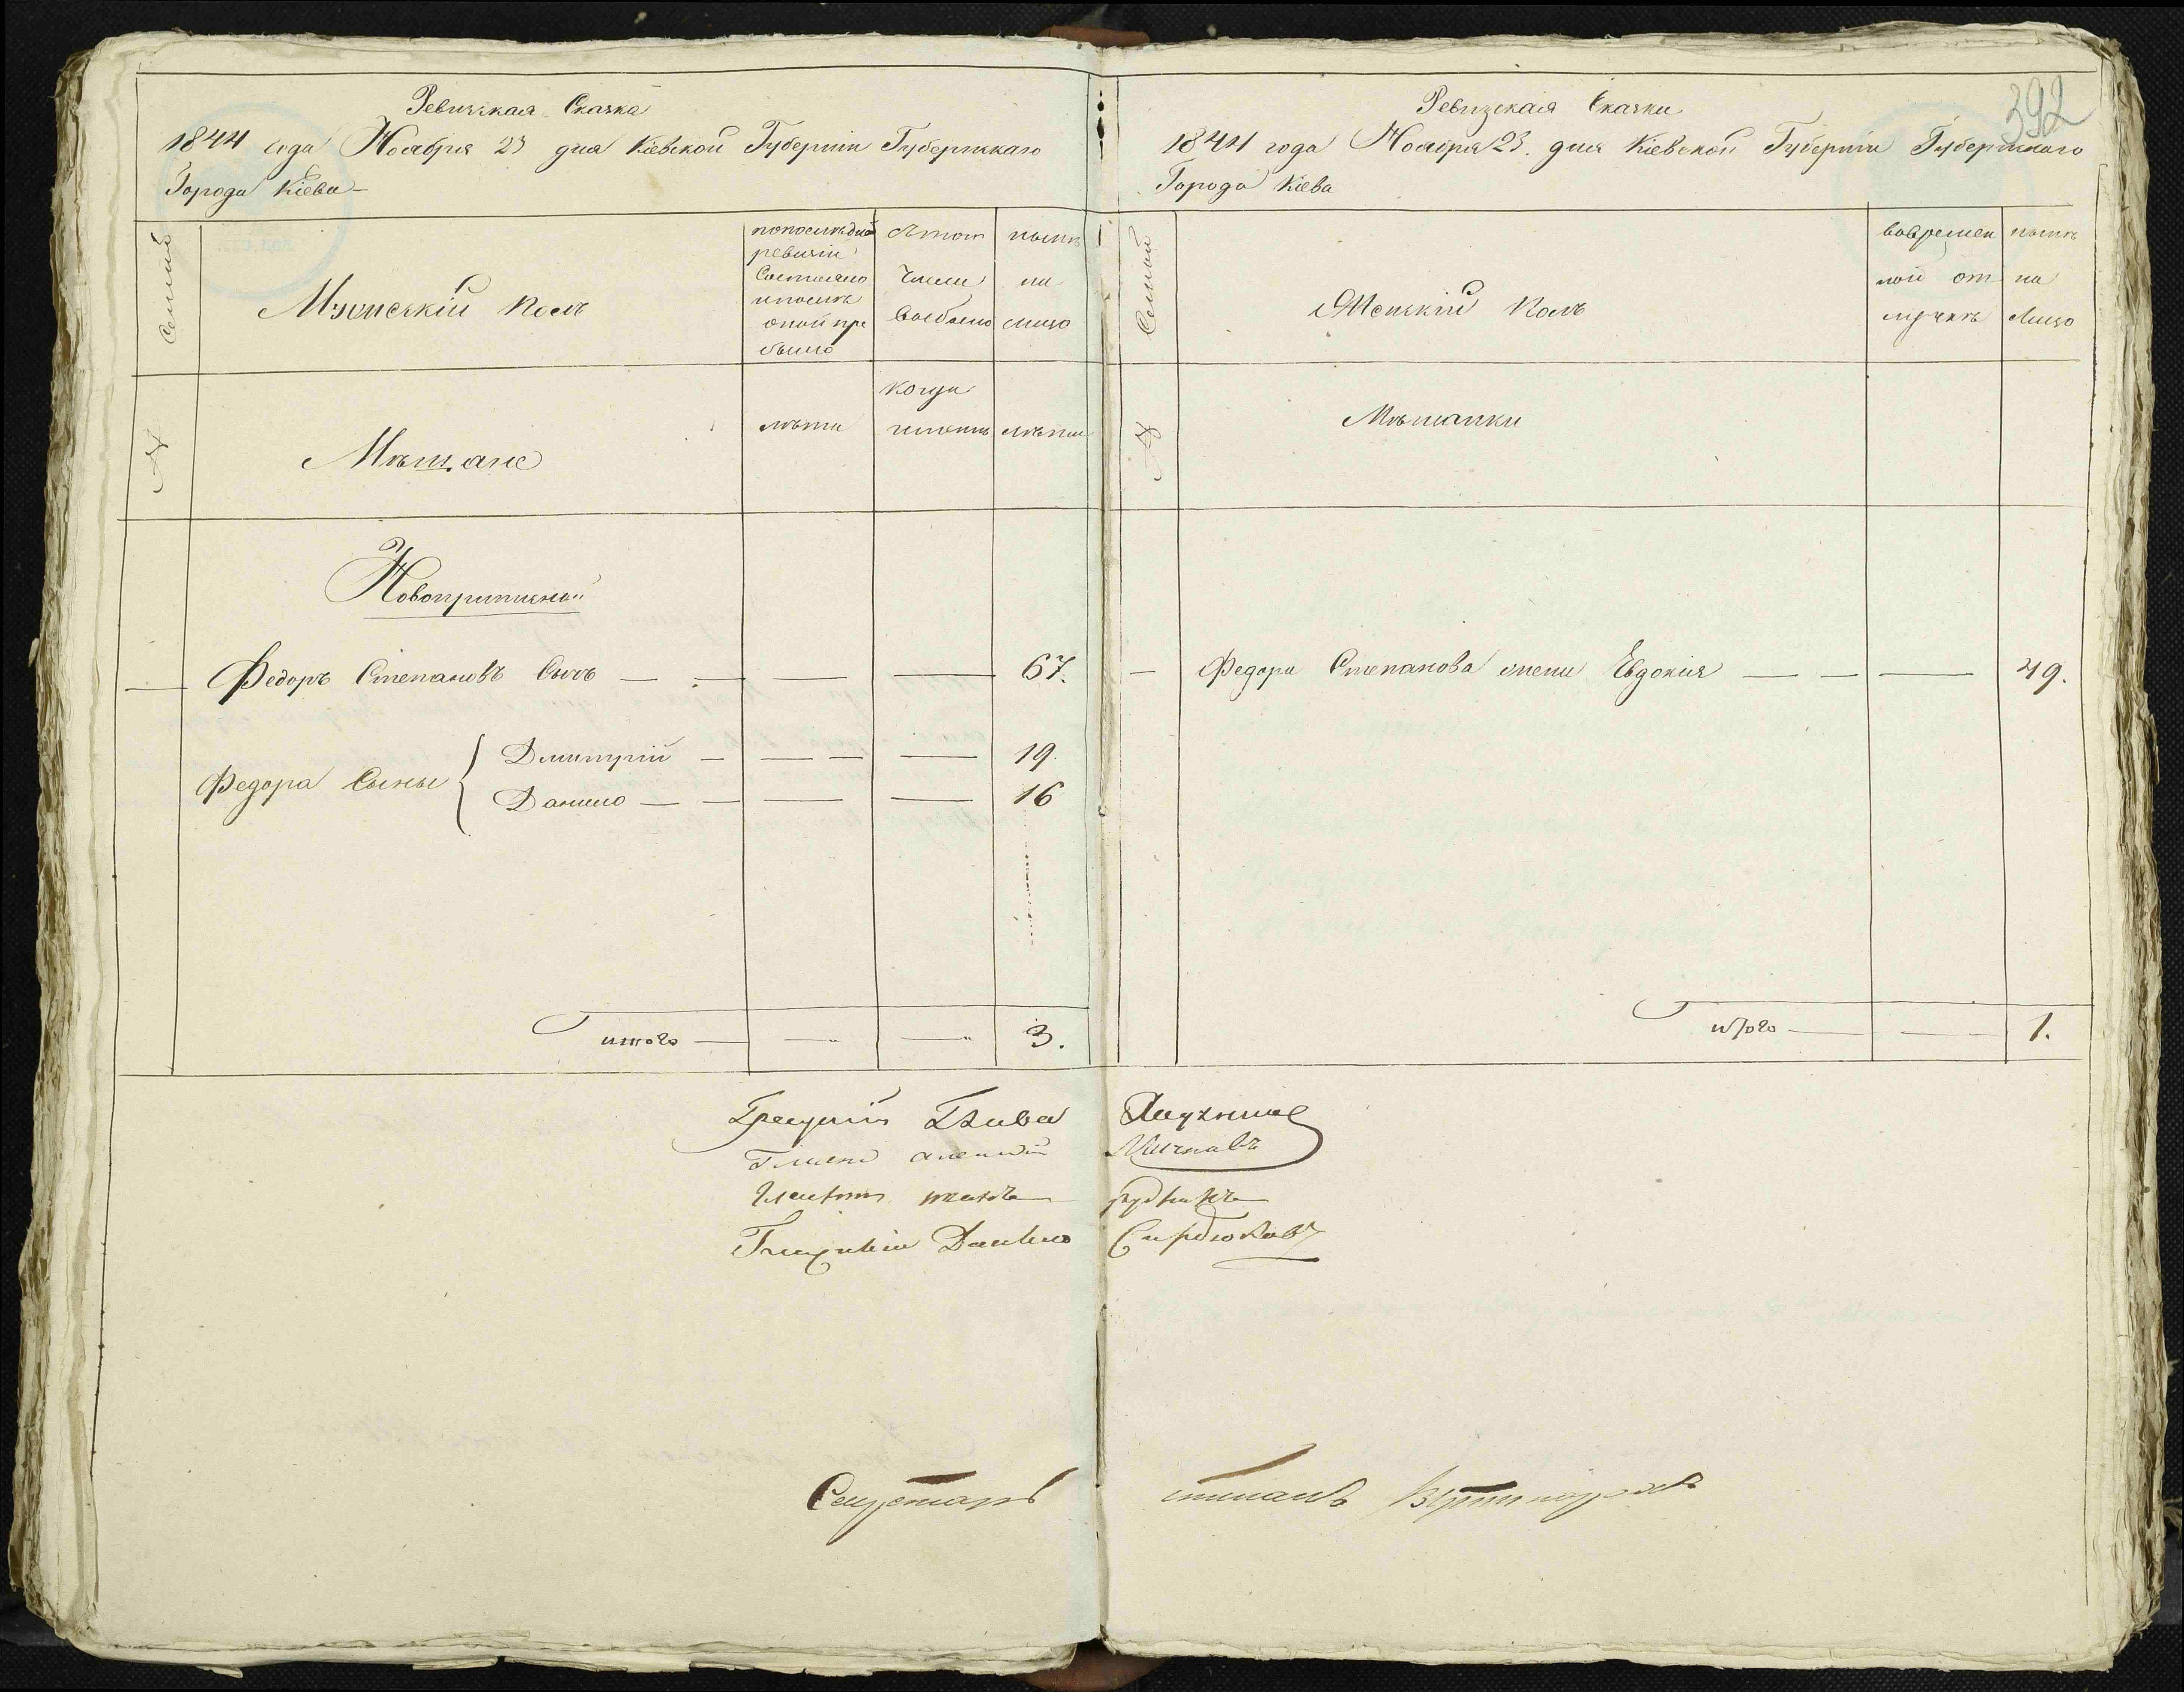 Ревизская Сказка
1844 года Ноября 23 дня Кіевской Губерніи Губернскаго
Города Кіева
Семей
Мужескій Полъ
попослѣдней
ревизіи
Состояло
ипослѣ
оной при
было
Изтого
Числа
Выбыло
нынѣ
на
лицо
№
Мѣщане
лѣта
Когда
именно
лѣта
Новоприписной
Федоръ Степановъ Сычъ 67.
Федора Сыны
Дмитрій 19.
Данило 16
итого 3.
392
Ревизская Сказка
1844 года Ноября 23. дня Кіевской Губерніи Губернскаго
Города Кіева
Семей
Женскій Полъ
вовремен
ной от
лучкѣ
нынѣ
на
Лицо
№
Мѣщанки
Федора Степанова жена Евдокія 49.
итого 1.
Гласный Данило Сирдюковъ
Секретарь